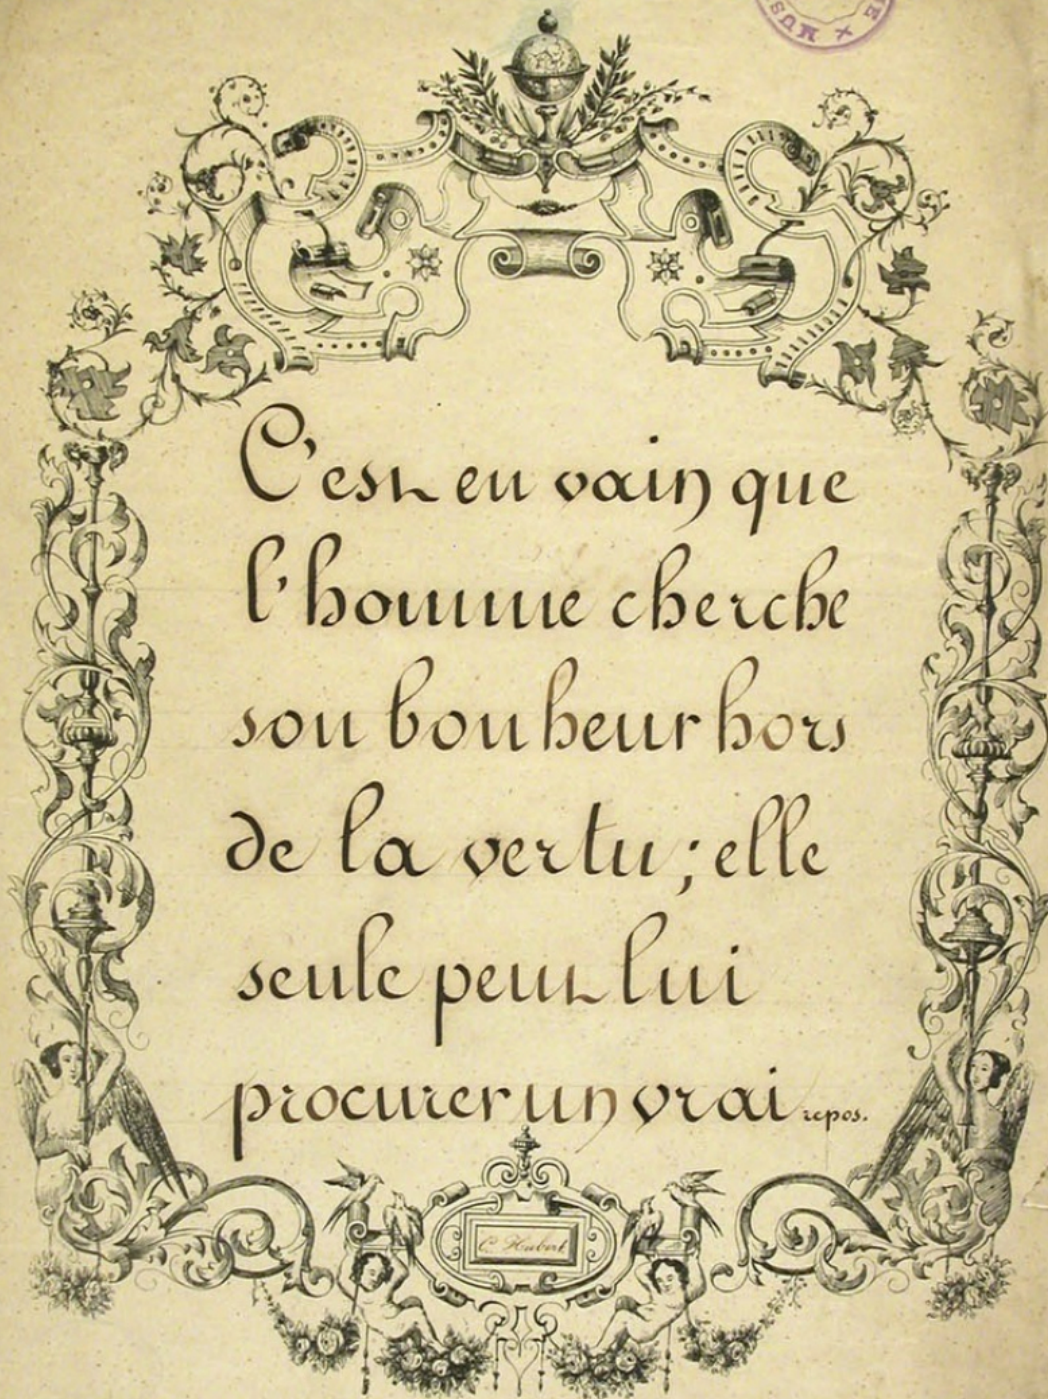 C'est en vain que
l'homme cherche
son bonheur hors
de la vertu; elle
seule peut lui
procurer un vrai repos.
C. Hubert